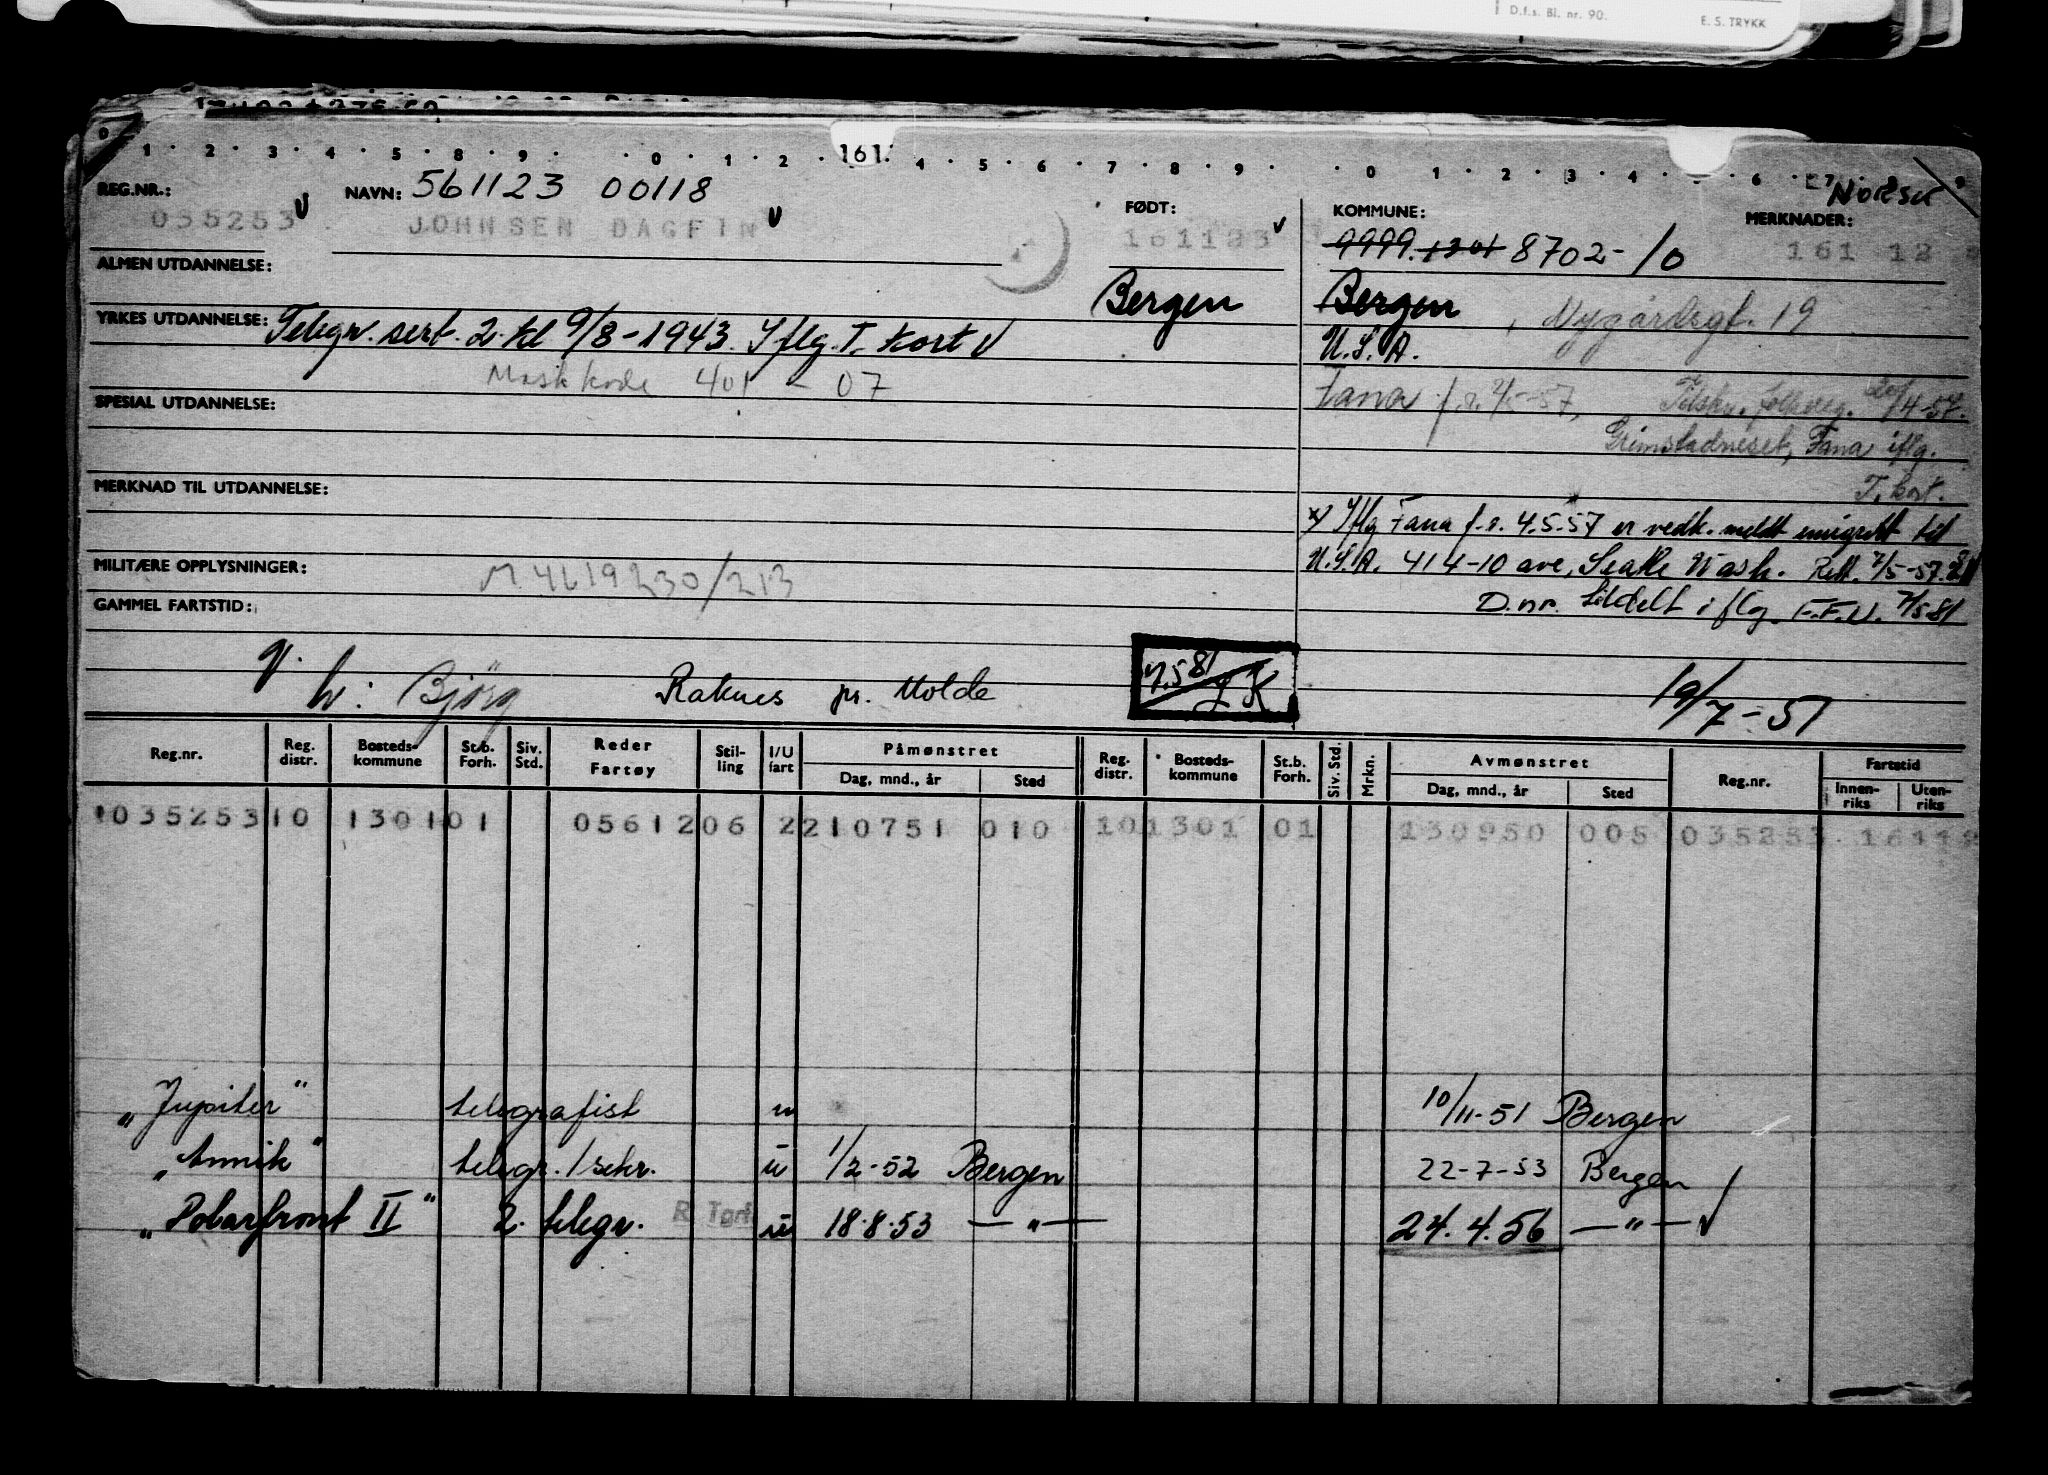 D.f.s. Bl. nr. 90. E. S. TRYKK
1 2 3 4 5 8 9 0 1 2 161. 4 5 6 7 8 9 0 1 2 3 4 6
REG.NR.: NAVN: 561123 00118 FØDT: KOMMUNE: MERKNADER: Norsk
035253 JOHNSEN DAGFIN 161123 9999 1301 8702-10 161 12
ALMEN UTDANNELSE: Bergen Bergen, Nygårdsgt. 19
YRKES UTDANNELSE: Telegr. sert. 2. kl 9/8-1943. Iflg. T. kort V U.S.A.
Maskkode 401 - 07
SPESIAL UTDANNELSE: Fana f.r. 2/5-57, Tilsky. folkereg. 4-57.
Grimstadneset, Fana iflg.
T. kort.
MERKNAD TIL UTDANNELSE:
x) Iflg Fana f.r. 4.5.57 er vedk. meldt emigrert til
MILITÆRE OPPLYSNINGER: M4619230/213 U.S.A. 414-10 ave, Seattle Wash. Rett. 7/5-57.
GAMMEL FARTSTID: D.nr. tildelt iflg. F.F.U. 7/5 81
g.
h: Bjørg Raknes pr. Molde 7.5 81 19/7-51
Reg.nr. Reg. distr. Bosteds-kommune St.b. Forh. Siv. Std. Reder Fartøy Stil-ling I/U fart Påmønstret Dag, mnd., år Sted Reg. distr. Bosteds-kommune St.b. Forh. Siv. Std. Mrkn. Avmønstret Dag, mnd., år Sted Reg.nr. Fartstid Innen-riks Uten-riks
1035253 10 1301 01 05612 06 2 210751 010 10 1301 01 130950 005 035253 16112
„Jupiter" telegrafist u 10/11-51 Bergen
„Annik" telegr./sekr. u 1/2-52 Bergen 22-7-53 Bergen
„Polarfront II" 2. telegr. u 18.8.53 —„— 24.4.56 —„—